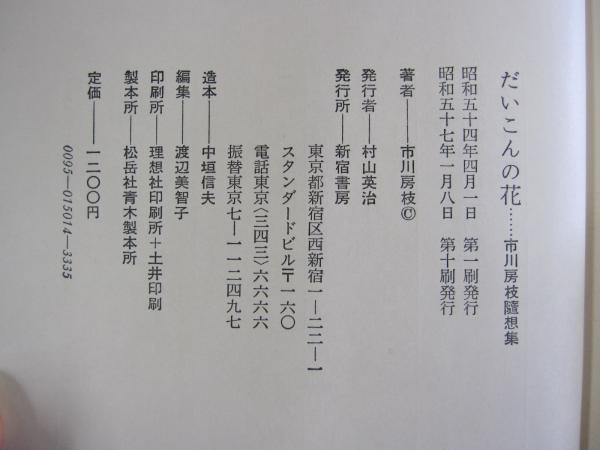 だいこんの花……市川房枝随想集
昭和五十四年四月一日 第一刷発行
昭和五十七年一月八日 第十刷発行
著者――市川房枝©
発行者――村山英治
発行所――新宿書房
東京都新宿区西新宿一―二二―一
スタンダードビル〒一六〇
電話東京〈三四三〉六六六六
振替東京七―一一二四九七
造本――中垣信夫
編集――渡辺美智子
印刷所――理想社印刷所+土井印刷
製本所――松岳社青木製本所
定価――一二〇〇円
0095―015014―3335